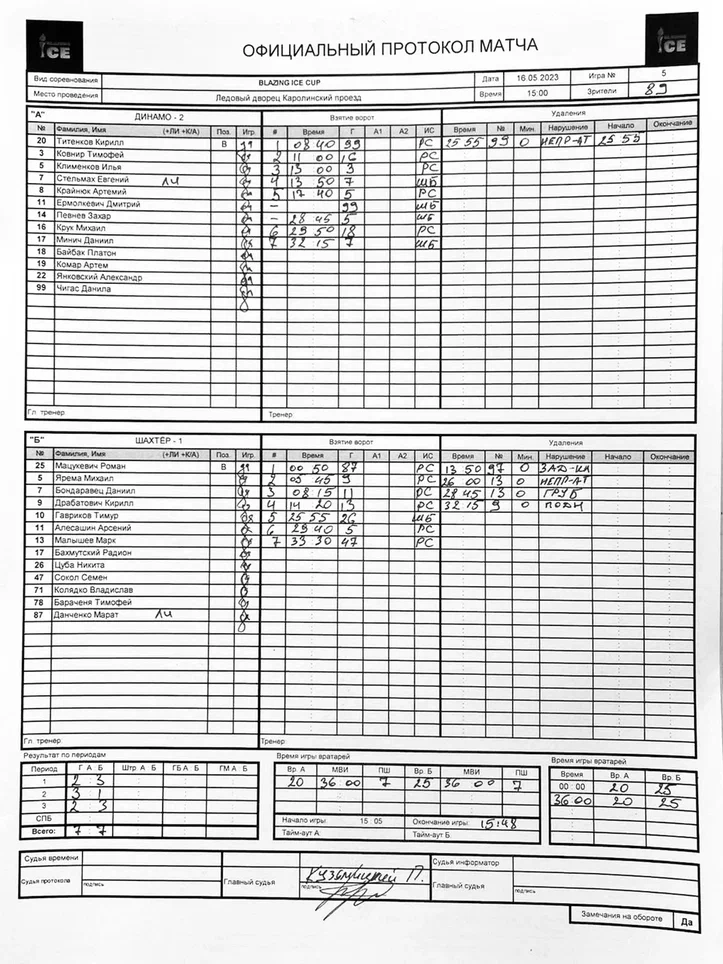 ICE
ОФИЦИАЛЬНЫЙ ПРОТОКОЛ МАТЧА
ICE
Вид соревнования BLAZING ICE CUP Дата 16.05.2023 Игра № 5
Место проведения Ледовый дворец Каролинский проезд Время 15:00 Зрители 89
"А" ДИНАМО - 2 Взятие ворот Удаления
№ Фамилия, Имя (+ЛИ +К/А) Поз. Игр. # Время Г А1 А2 ИС Время № Мин. Нарушение Начало Окончание
20 Титенков Кирилл В 1 08 40 99 РС 25 55 99 0 НЕПР-АТ 25 55
3 Ковнир Тимофей 2 11 00 16 РС
5 Клименков Илья 3 13 00 3 РС
7 Стельмах Евгений ЛИ 4 13 50 7 ШБ
8 Крайнюк Артемий 5 17 40 5 РС
11 Ермолкевич Дмитрий - 99 ШБ
14 Певнев Захар - 28 45 5 ШБ
16 Крук Михаил 6 29 50 18 РС
17 Минич Даниил 7 32 15 7 ШБ
18 Байбак Платон
19 Комар Артем
22 Янковский Александр
99 Чигас Данила
Гл. тренер Тренер
"Б" ШАХТЁР - 1 Взятие ворот Удаления
№ Фамилия, Имя (+ЛИ +К/А) Поз. Игр. # Время Г А1 А2 ИС Время № Мин. Нарушение Начало Окончание
25 Мацукевич Роман В 1 00 50 87 РС 13 50 97 0 ЗАД-КЛ
5 Ярема Михаил 2 05 45 9 РС 26 00 13 0 НЕПР-АТ
7 Бондаревец Даниил 3 08 15 11 РС 28 45 13 0 ГРУБ
9 Драбатович Кирилл 4 14 20 13 РС 32 15 9 0 ПОДН
10 Гавриков Тимур 5 25 55 26 ШБ
11 Алесашин Арсений 6 29 40 5 РС
13 Малышев Марк 7 33 30 47 РС
17 Бахмутский Радион
26 Цуба Никита
47 Сокол Семен
71 Колядко Владислав
78 Бараченя Тимофей
87 Данченко Марат ЛИ
Гл. тренер Тренер
Результат по периодам Время игры вратарей Время игры вратарей
Период Г А Б Штр А Б ГБ А Б ГМ А Б Вр. А МВИ ПШ Вр. Б МВИ ПШ Время Вр. А Вр. Б
1 2 3 20 36 00 7 25 36 00 7 00 : 00 20 25
2 3 1 36 00 20 25
3 2 3
СПБ Начало игры 15 : 05 Окончание игры 15:48
Всего: 7 7 Тайм-аут А Тайм-аут Б
Судья времени Судья информатор
Судья протокола подпись Главный судья подпись Кузьмицкий П. Главный судья подпись
Замечания на обороте Да